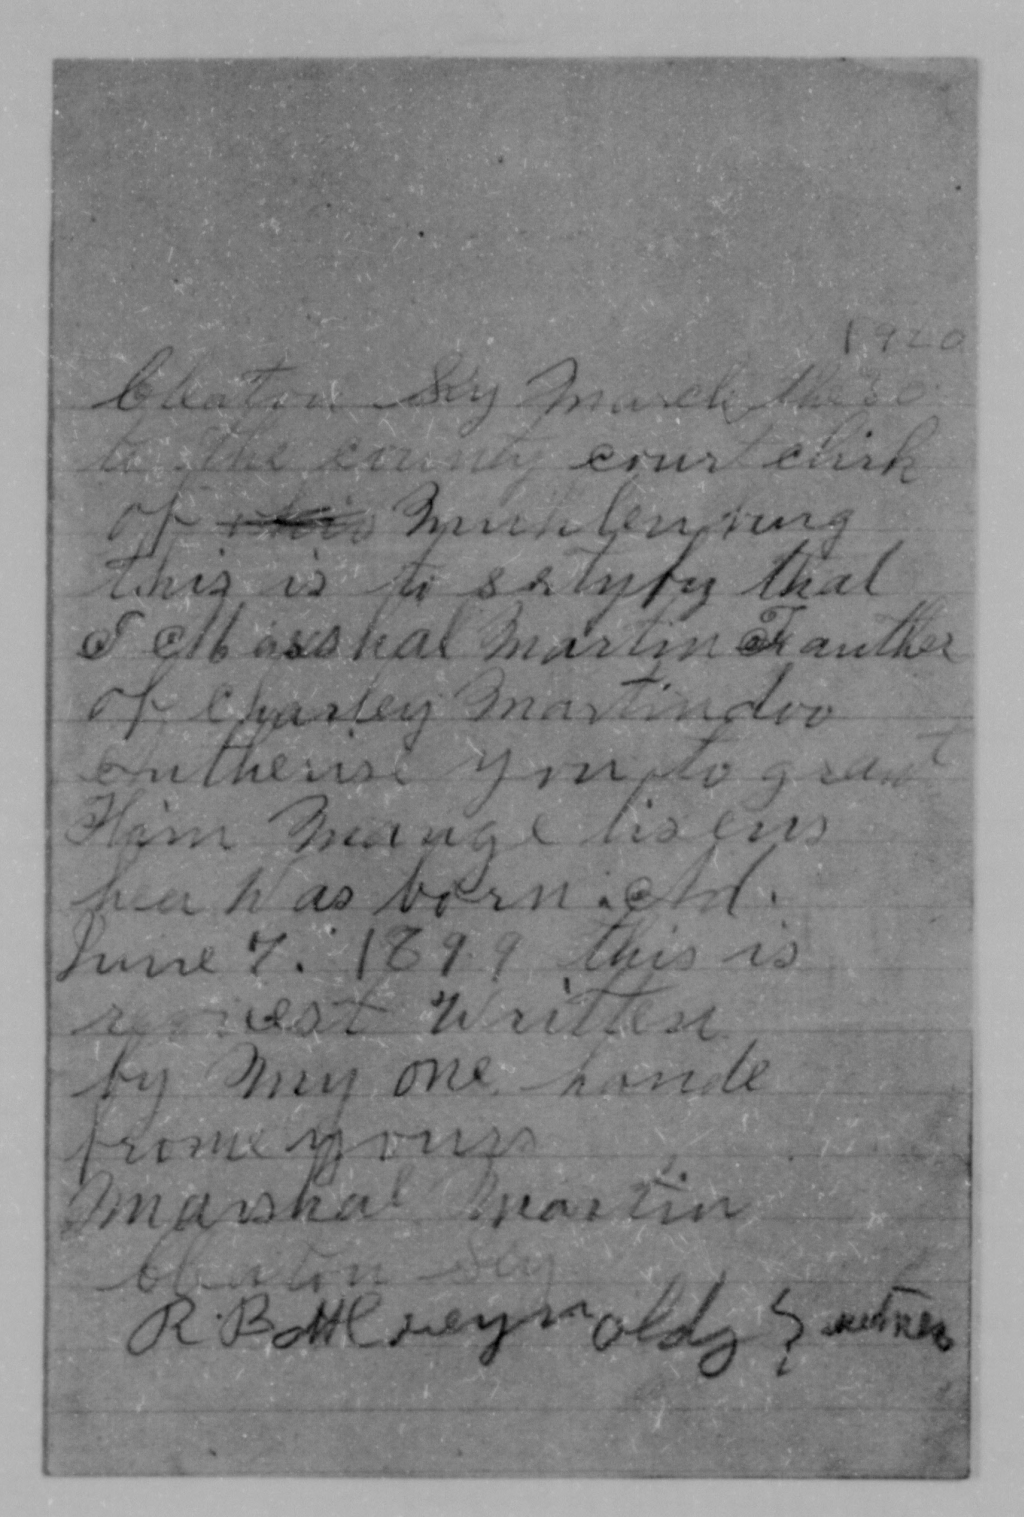 1920
Cleaton Ky March the 30
to the county court clirk
of this Muhlenburg
this is to sertyfy that
I Marshal Martin Fauther
of Charley Martin doo
Autherise you to grant
Him Marage lisens
hea Was born. And.
June 7. 1899 this is
request Written
by My one hande
frome yours
Marshal Martin
Cleaton Ky
R. B. McReynolds } witness